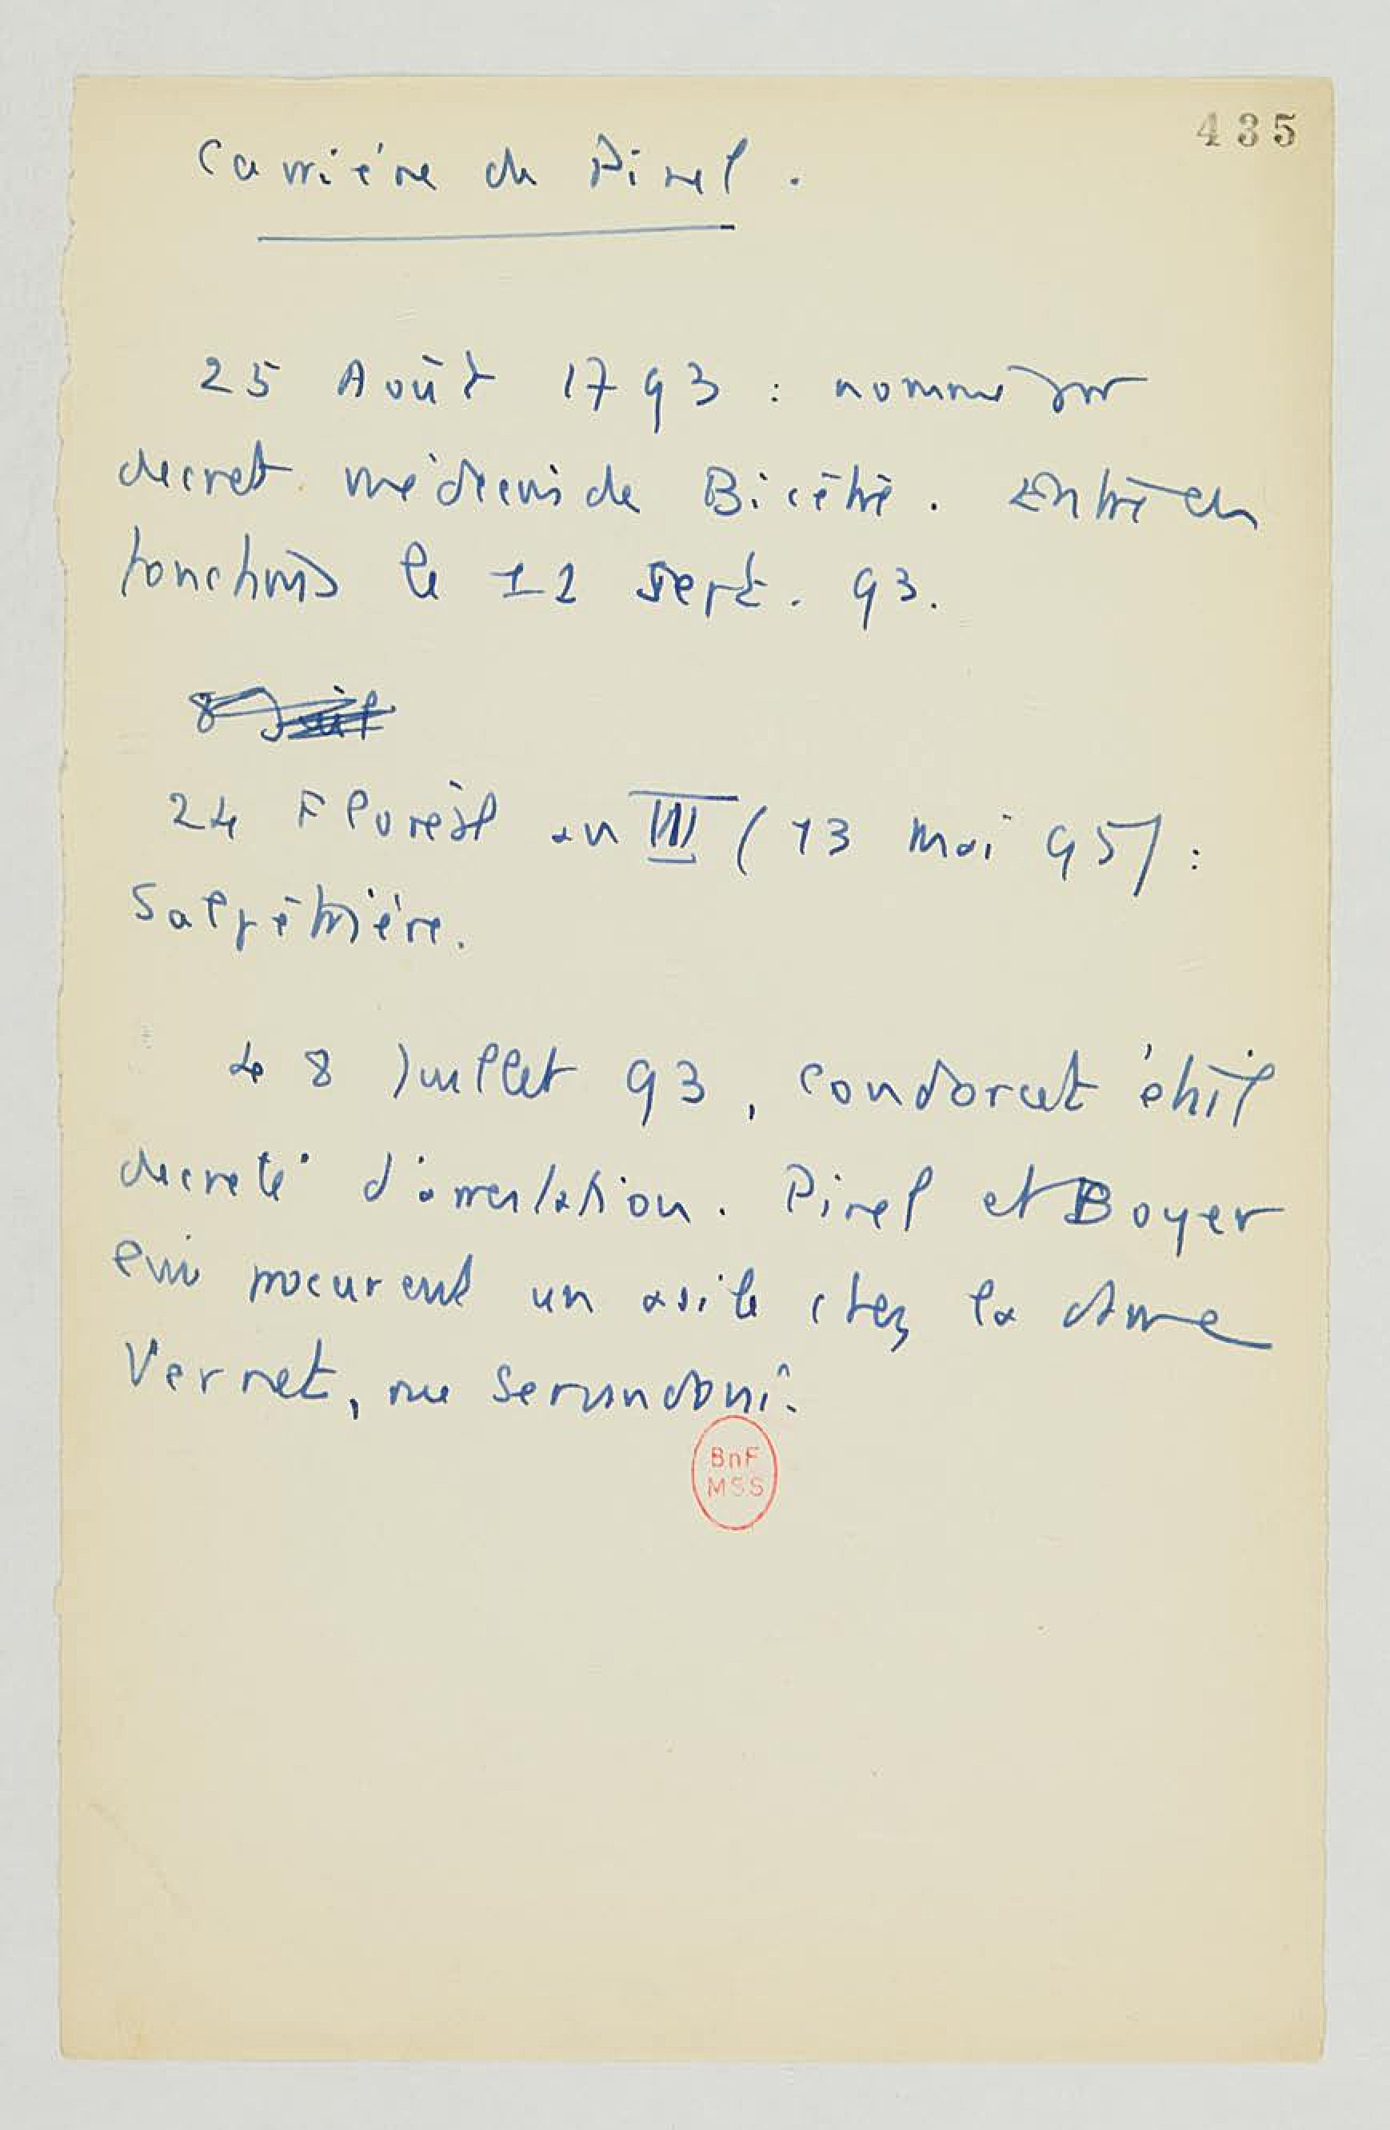 435
Carrière de Pinel.
25 Août 1793 : nommé par
decret médecin de Bicêtre. Entre en
fonctions le 11 sept. 93.
8 Juil
24 Floréal an III (13 mai 95) :
Salpêtrière.
Le 8 Juillet 93, Condorcet était
decreté d'arrestation. Pinel et Boyer
lui procurent un asile chez la dame
Vernet, rue Servandoni.
BnF
MSS